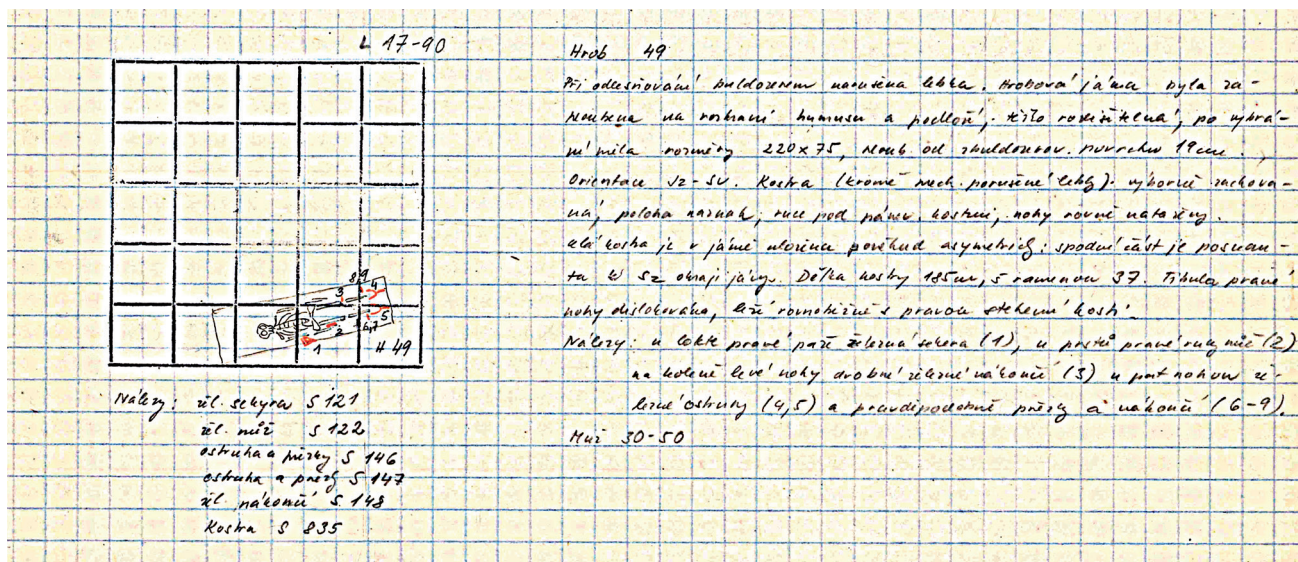 L 17-90
8,9
3
4
5
2
6,7
1
H 49
Nálezy: žel. sekyra S 121
žel. nůž S 122
ostruha a přezky S 146
ostruha a přezky S 147
žel. nákončí S 148
Kostra S 835
Hrob 49
Při odlesňování buldozerem narušena lebka. Hrobová jáma byla za-
hloubena na rozhraní humusu a podloží, těžo rozlišitelná, po vybrá-
ní měla rozměry 220x75, hloub. od zbuldozerov. povrchu 19cm.
Orientace JZ-SV. Kostra (kromě mech. porušené lebky) výborně zachova-
ná, poloha naznak, ruce pod pánev. kostmi, nohy rovně nataženy.
Celá kostra je v jámě uložena poněkud asymetricky: spodní část je posunu-
ta k SZ okraji jámy. Délka kostry 185cm, š ramenou 37. Fibula pravé
nohy dislokována, leží rovnoběžně s pravou stehenní kostí.
Nálezy: u lokte pravé paže železná sekera (1), u prstů pravé ruky nůž (2)
na koleně levé nohy drobné železné nákončí (3) u pat nohou že-
lezné ostruhy (4,5) a pravděpodobně přezky a nákončí (6-9).
Muž 30-50